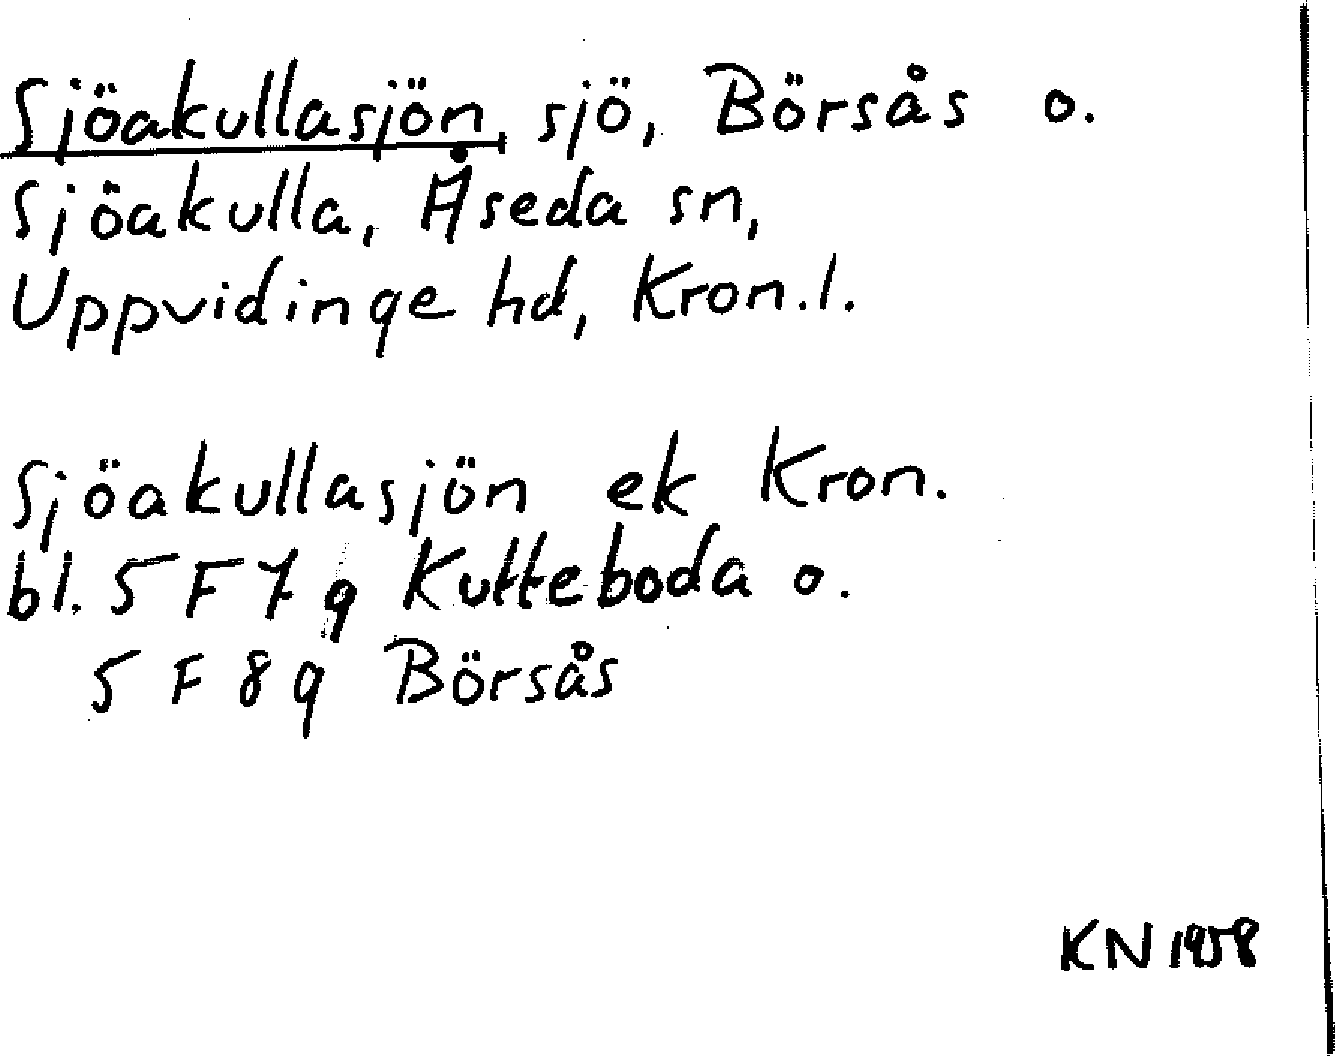 Sjöakullasjön, sjö, Börsås o.
Sjöakulla, Åseda sn,
Uppvidinge hd, Kron.l.
Sjöakullasjön ek Kron.
bl. 5 F 7 g Kutteboda o.
5 F 8 g Börsås
KN 1958